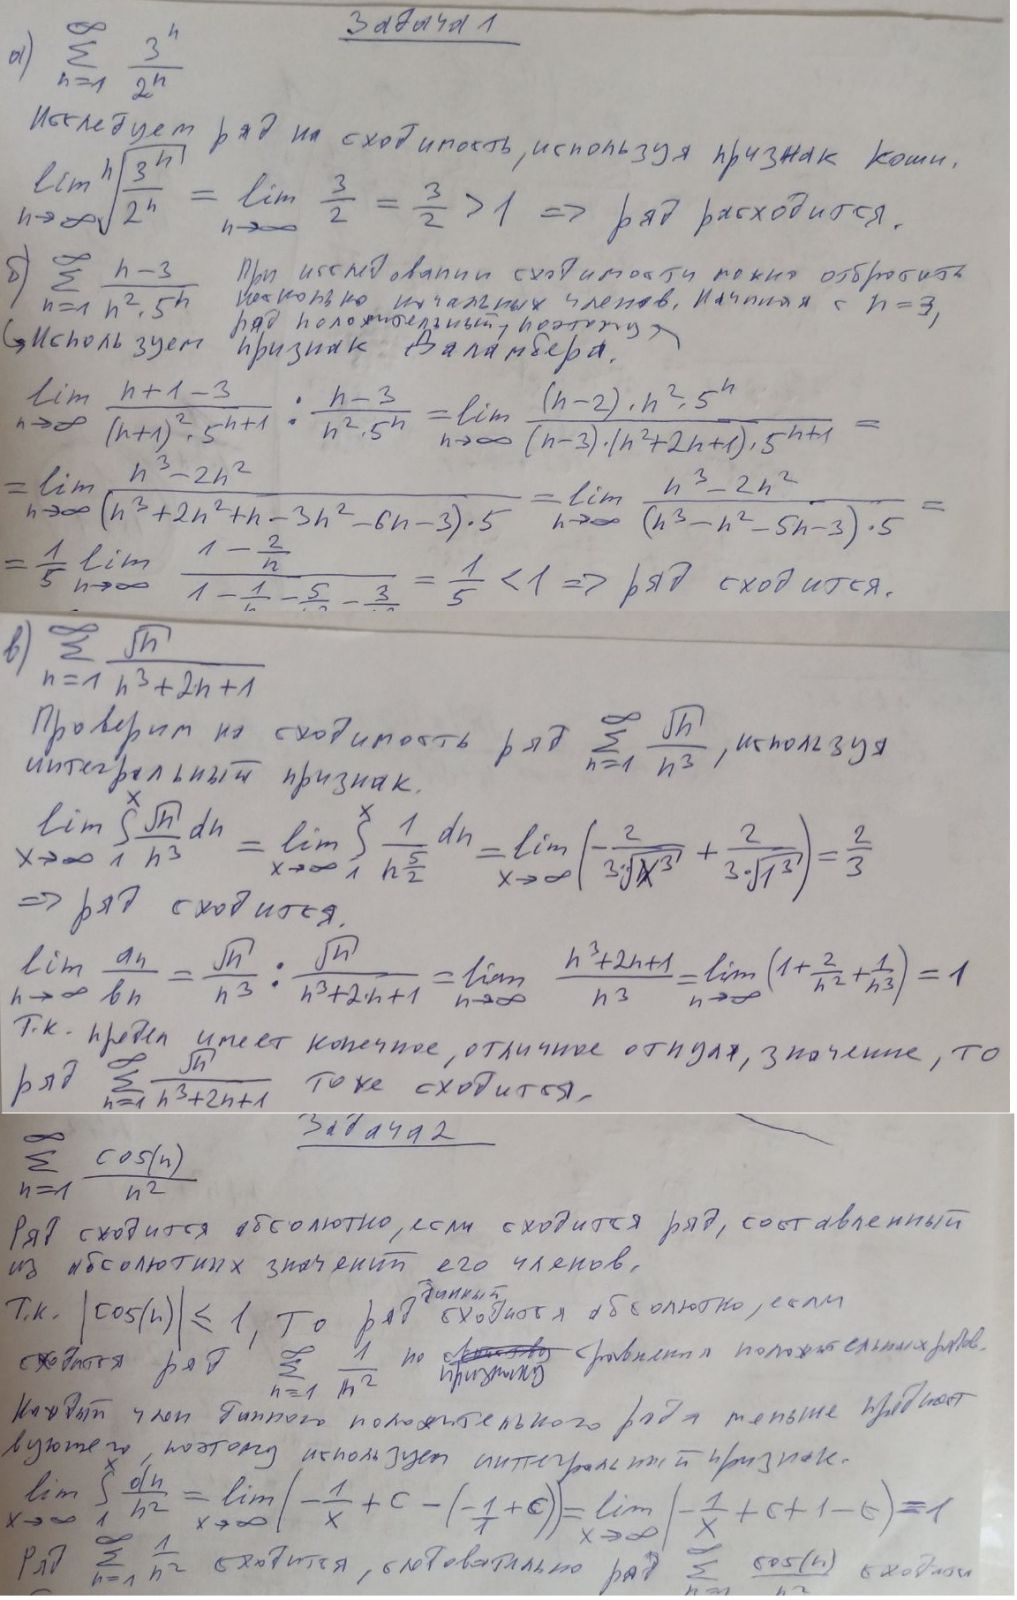 Задача 1
а) ∑_{n=1}^{∞} 3^n / 2^n
Исследуем ряд на сходимость, используя признак Коши.
lim_{n→∞} ⁿ√(3^n / 2^n) = lim_{n→∞} 3/2 = 3/2 > 1 => ряд расходится.
б) ∑_{n=1}^{∞} (n-3) / (n²·5^n) При исследовании сходимости можно отбросить
несколько начальных членов. Начиная с n=3,
ряд положительный, поэтому
Используем признак Даламбера.
lim_{n→∞} (n+1-3) / ((n+1)²·5^{n+1}) : (n-3) / (n²·5^n) = lim_{n→∞} ((n-2)·n²·5^n) / ((n-3)·(n²+2n+1)·5^{n+1}) =
= lim_{n→∞} (n³-2n²) / ((n³+2n²+n-3n²-6n-3)·5) = lim_{n→∞} (n³-2n²) / ((n³-n²-5n-3)·5) =
= 1/5 lim_{n→∞} (1 - 2/n) / (1 - 1/n - 5/n² - 3/n³) = 1/5 < 1 => ряд сходится.
в) ∑_{n=1}^{∞} √n / (n³+2n+1)
Проверим на сходимость ряд ∑_{n=1}^{∞} √n / n³, используя
интегральный признак.
lim_{x→∞} ∫_1^x √n / n³ dn = lim_{x→∞} ∫_1^x 1 / n^{5/2} dn = lim_{x→∞} (-2 / (3·√x³) + 2 / (3·√1³)) = 2/3
=> ряд сходится.
lim_{n→∞} an / bn = √n / n³ : √n / (n³+2n+1) = lim_{n→∞} (n³+2n+1) / n³ = lim_{n→∞} (1 + 2/n² + 1/n³) = 1
Т.к. предел имеет конечное, отличное от нуля, значение, то
ряд ∑_{n=1}^{∞} √n / (n³+2n+1) тоже сходится.
Задача 2
∑_{n=1}^{∞} cos(n) / n²
Ряд сходится абсолютно, если сходится ряд, составленный
из абсолютных значений его членов.
Т.к. |cos(n)| ≤ 1, то данный ряд сходится абсолютно, если
сходится ряд ∑_{n=1}^{∞} 1 / n² по признаку сравнения положительных рядов.
Каждый член данного положительного ряда меньше предшест
вующего, поэтому используем интегральный признак.
lim_{x→∞} ∫_1^x dn / n² = lim_{x→∞} (-1/x + c - (-1/1 + c)) = lim_{x→∞} (-1/x + c + 1 - c) = 1
Ряд ∑_{n=1}^{∞} 1 / n² сходится, следовательно ряд ∑_{n=1}^{∞} cos(n) / n² сходится